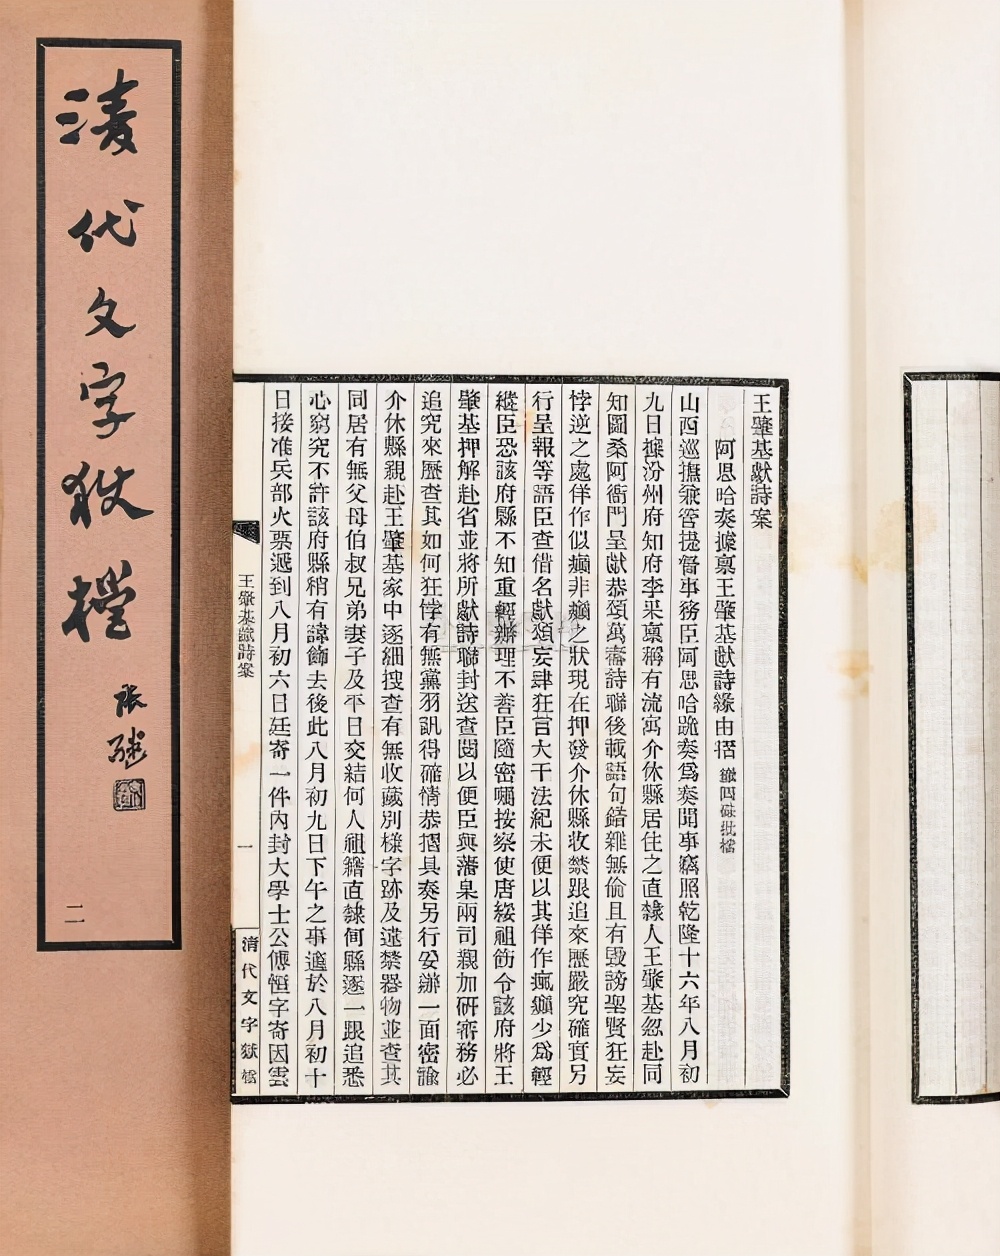 清代文字獄檔
張繼
二
王肇基獻詩案
阿思哈奏據稟王肇基獻詩緣由摺 繳回硃批檔
山西巡撫兼管提督事務臣阿思哈跪奏爲奏聞事竊照乾隆十六年八月初
九日據汾州府知府李果稟稱有流寓介休縣居住之直隸人王肇基忽赴同
知圖桑阿衙門呈獻恭頌萬壽詩聯後載語句錯雜無倫且有毀謗聖賢狂妄
悖逆之處佯作似癲非癲之狀現在押發介休縣收禁跟追來歷嚴究確實另
行呈報等語臣查借名獻頌妄肆狂言大干法紀未便以其佯作瘋癲少爲輕
縱臣恐該府縣不知重輕辦理不善臣隨密囑按察使唐綏祖飭令該府將王
肇基押解赴省並將所獻詩聯封送查閱以便臣與藩臬兩司親加研審務必
追究來歷查其如何狂悖有無黨羽訊得確情恭摺具奏另行妥辦一面密諭
介休縣親赴王肇基家中逐細搜查有無收藏別樣字跡及違禁器物並查其
同居有無父母伯叔兄弟妻子及平日交結何人祖籍直隸何縣逐一跟追悉
心窮究不許該府縣稍有諱飾去後此八月初九日下午之事適於八月初十
日接准兵部火票遞到八月初六日廷寄一件內封大學士公傅恒字寄因雲
王肇基獻詩案
一
清代文字獄檔